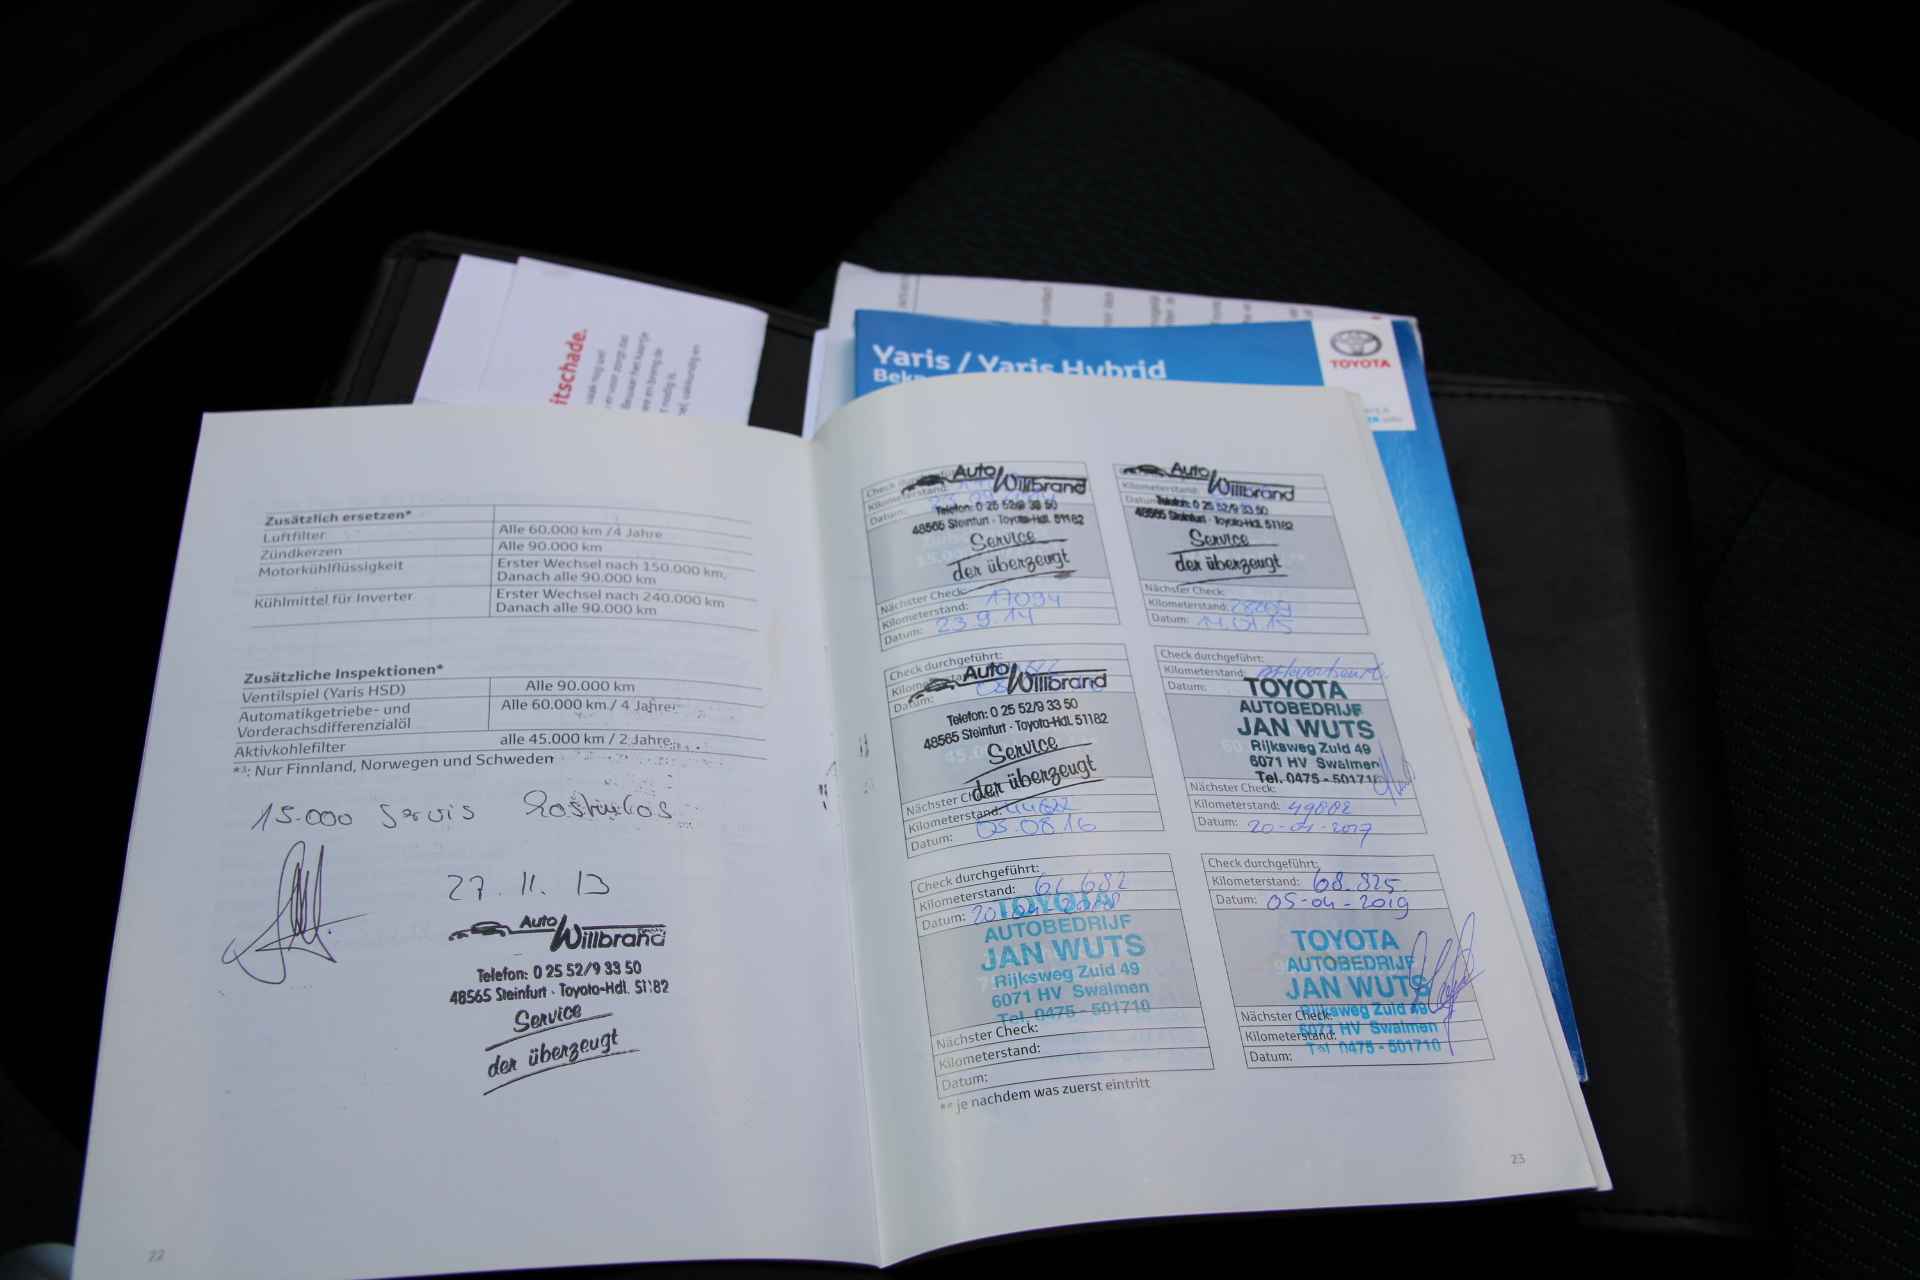 itschade.
Yaris / Yaris Hybrid
TOYOTA
Zusätzlich ersetzen*
Luftfilter Alle 60.000 km /4 Jahre
Zündkerzen Alle 90.000 km
Motorkühlflüssigkeit Erster Wechsel nach 150.000 km,
Danach alle 90.000 km
Kühlmittel für Inverter Erster Wechsel nach 240.000 km
Danach alle 90.000 km
Zusätzliche Inspektionen*
Ventilspiel (Yaris HSD) Alle 90.000 km
Automatikgetriebe- und Alle 60.000 km / 4 Jahre
Vorderachsdifferenzialöl
Aktivkohlefilter alle 45.000 km / 2 Jahre
Nur Finnland, Norwegen und Schweden
15.000 Servis
27.11.13
Auto
Willbrand
Telefon: 0 25 52/9 33 50
48565 Steinfurt · Toyota-Hdl. 51182
Service
der überzeugt
22
Auto
Willbrand
Kilometerstand:
Datum:
Telefon: 0 25 52/9 33 50
48565 Steinfurt · Toyota-Hdl. 51182
Service
der überzeugt
Nächster Check:
Kilometerstand: 17094
Datum: 23.9.14
Auto
Willbrand
Kilometerstand:
Telefon: 0 25 52/9 33 50
48565 Steinfurt · Toyota-Hdl. 51182
Service
der überzeugt
Nächster Check:
Kilometerstand:
Datum:
Check durchgeführt:
Auto
Willbrand
Datum:
Telefon: 0 25 52/9 33 50
48565 Steinfurt · Toyota-Hdl. 51182
Service
der überzeugt
Nächster
Kilometerstand:
Datum: 05.08.16
Check durchgeführt:
Kilometerstand:
Datum:
TOYOTA
AUTOBEDRIJF
JAN WUTS
Rijksweg Zuid 49
6071 HV Swalmen
Tel. 0475 - 501710
Nächster Check:
Kilometerstand:
Datum:
Check durchgeführt:
Kilometerstand: 61.682
Datum:
TOYOTA
AUTOBEDRIJF
JAN WUTS
Rijksweg Zuid 49
6071 HV Swalmen
Tel. 0475 - 501710
Nächster Check:
Kilometerstand:
Datum:
Check durchgeführt:
Kilometerstand: 68.825
Datum: 05-04-2019
TOYOTA
AUTOBEDRIJF
JAN WUTS
Rijksweg Zuid 49
Nächster Check:
6071 HV Swalmen
Kilometerstand:
Tel. 0475 - 501710
Datum:
je nachdem was zuerst eintritt
23